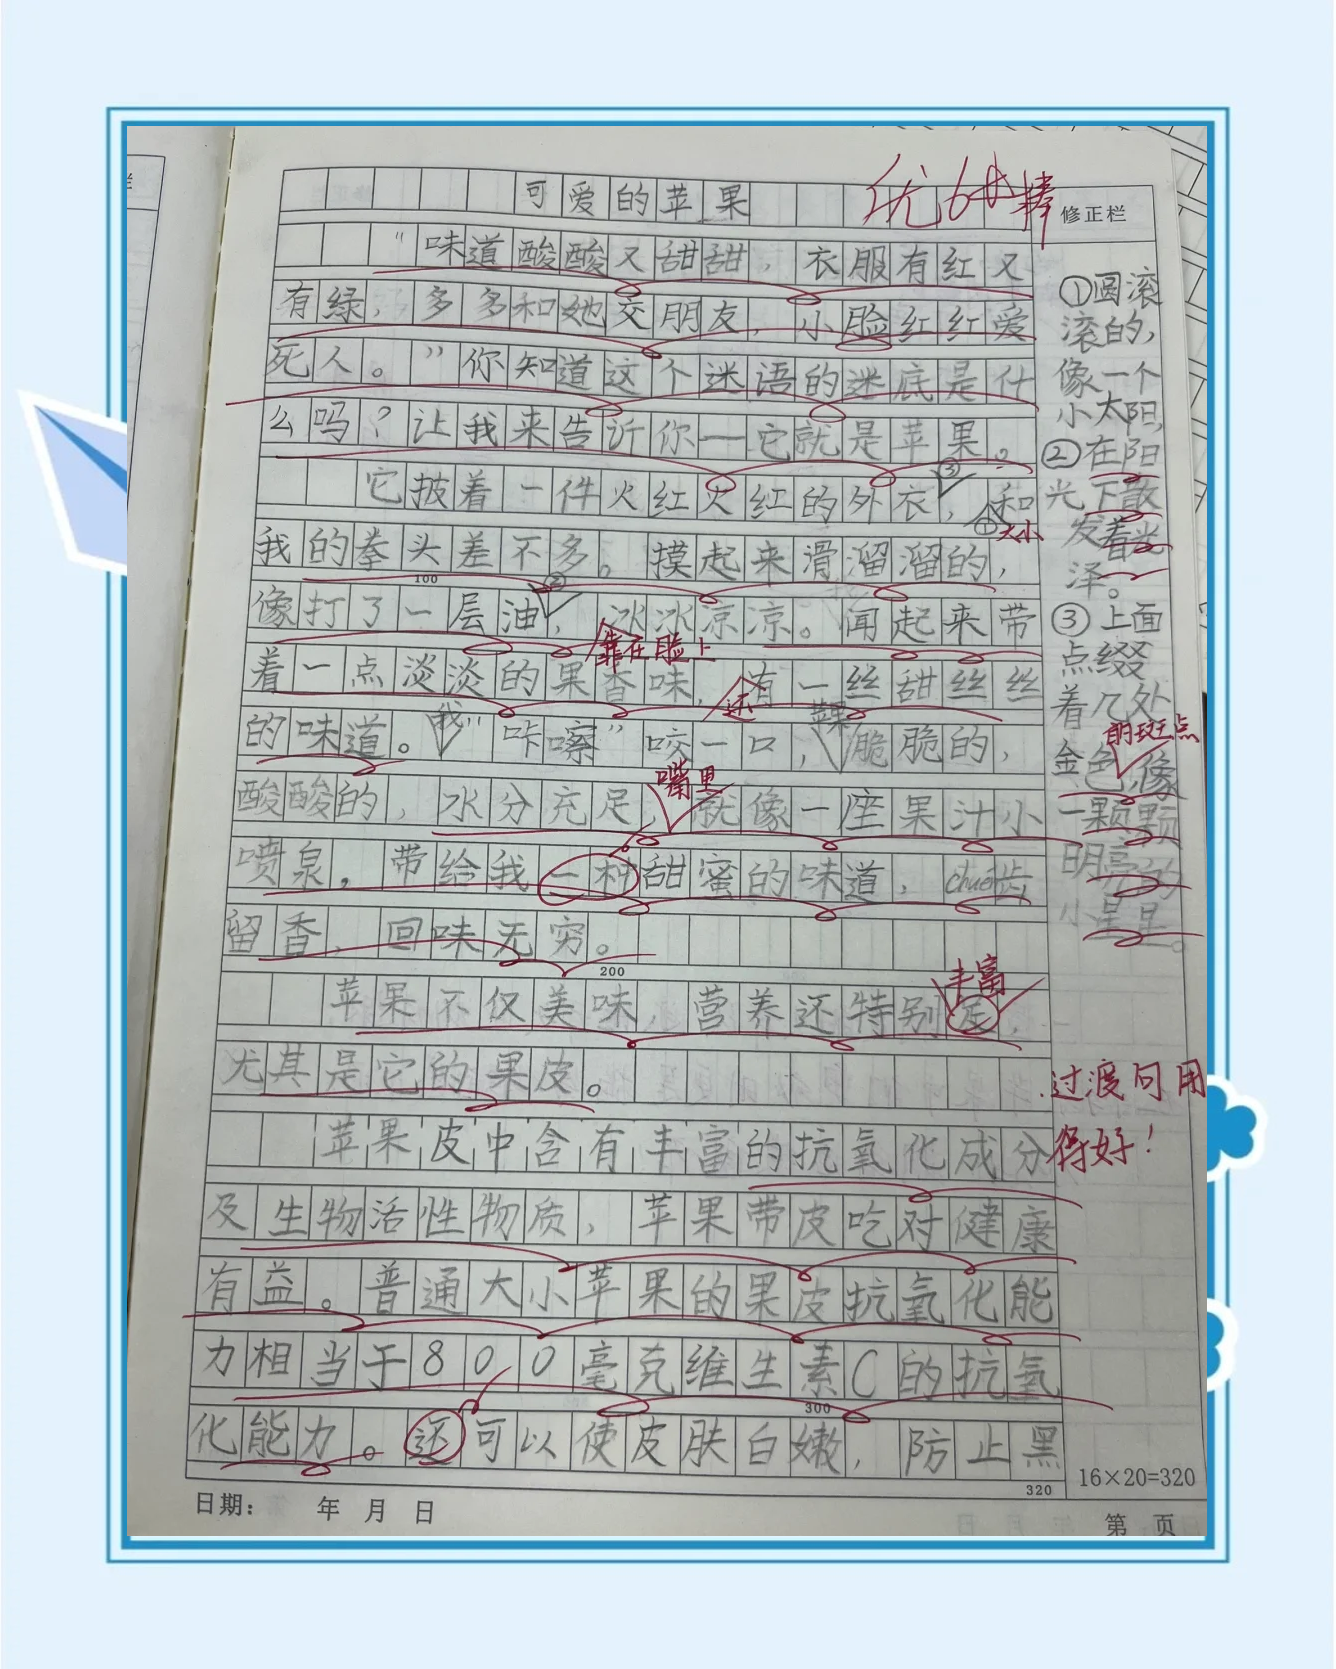 可爱的苹果
优 棒
修正栏
“味道酸酸又甜甜，衣服有红又
有绿，多多和她交朋友，小脸红红爱
死人。”你知道这个迷语的迷底是什
么吗？让我来告䜣你—它就是苹果。
它披着一件火红火红的外衣，和
③
①大小
我的拳头差不多。摸起来滑溜溜的，
100
②
像打了一层油，冰冰凉凉。闻起来带
靠在脸上
着一点淡淡的果香味，有一丝甜丝丝
还
苹果
的味道。“咔嚓”咬一口，脆脆的，
我
嘴里
酸酸的，水分充足，就像一座果汁小
喷泉，带给我一种甜蜜的味道，chún齿
留香，回味无穷。
200
丰富
苹果不仅美味，营养还特别足，
尤其是它的果皮。
苹果皮中含有丰富的抗氧化成分
及生物活性物质，苹果带皮吃对健康
有益。普通大小苹果的果皮抗氧化能
力相当于800毫克维生素C的抗氧
300
化能力。还可以使皮肤白嫩，防止黑
320
①圆滚
滚的，
像一个
小太阳，
②在阳
光下散
发着光
泽。
③上面
点缀
着几处
的斑点
金色，像
一颗颗
明亮的
小星星。
过渡句用
得好！
16×20=320
日期： 年 月 日
第 页